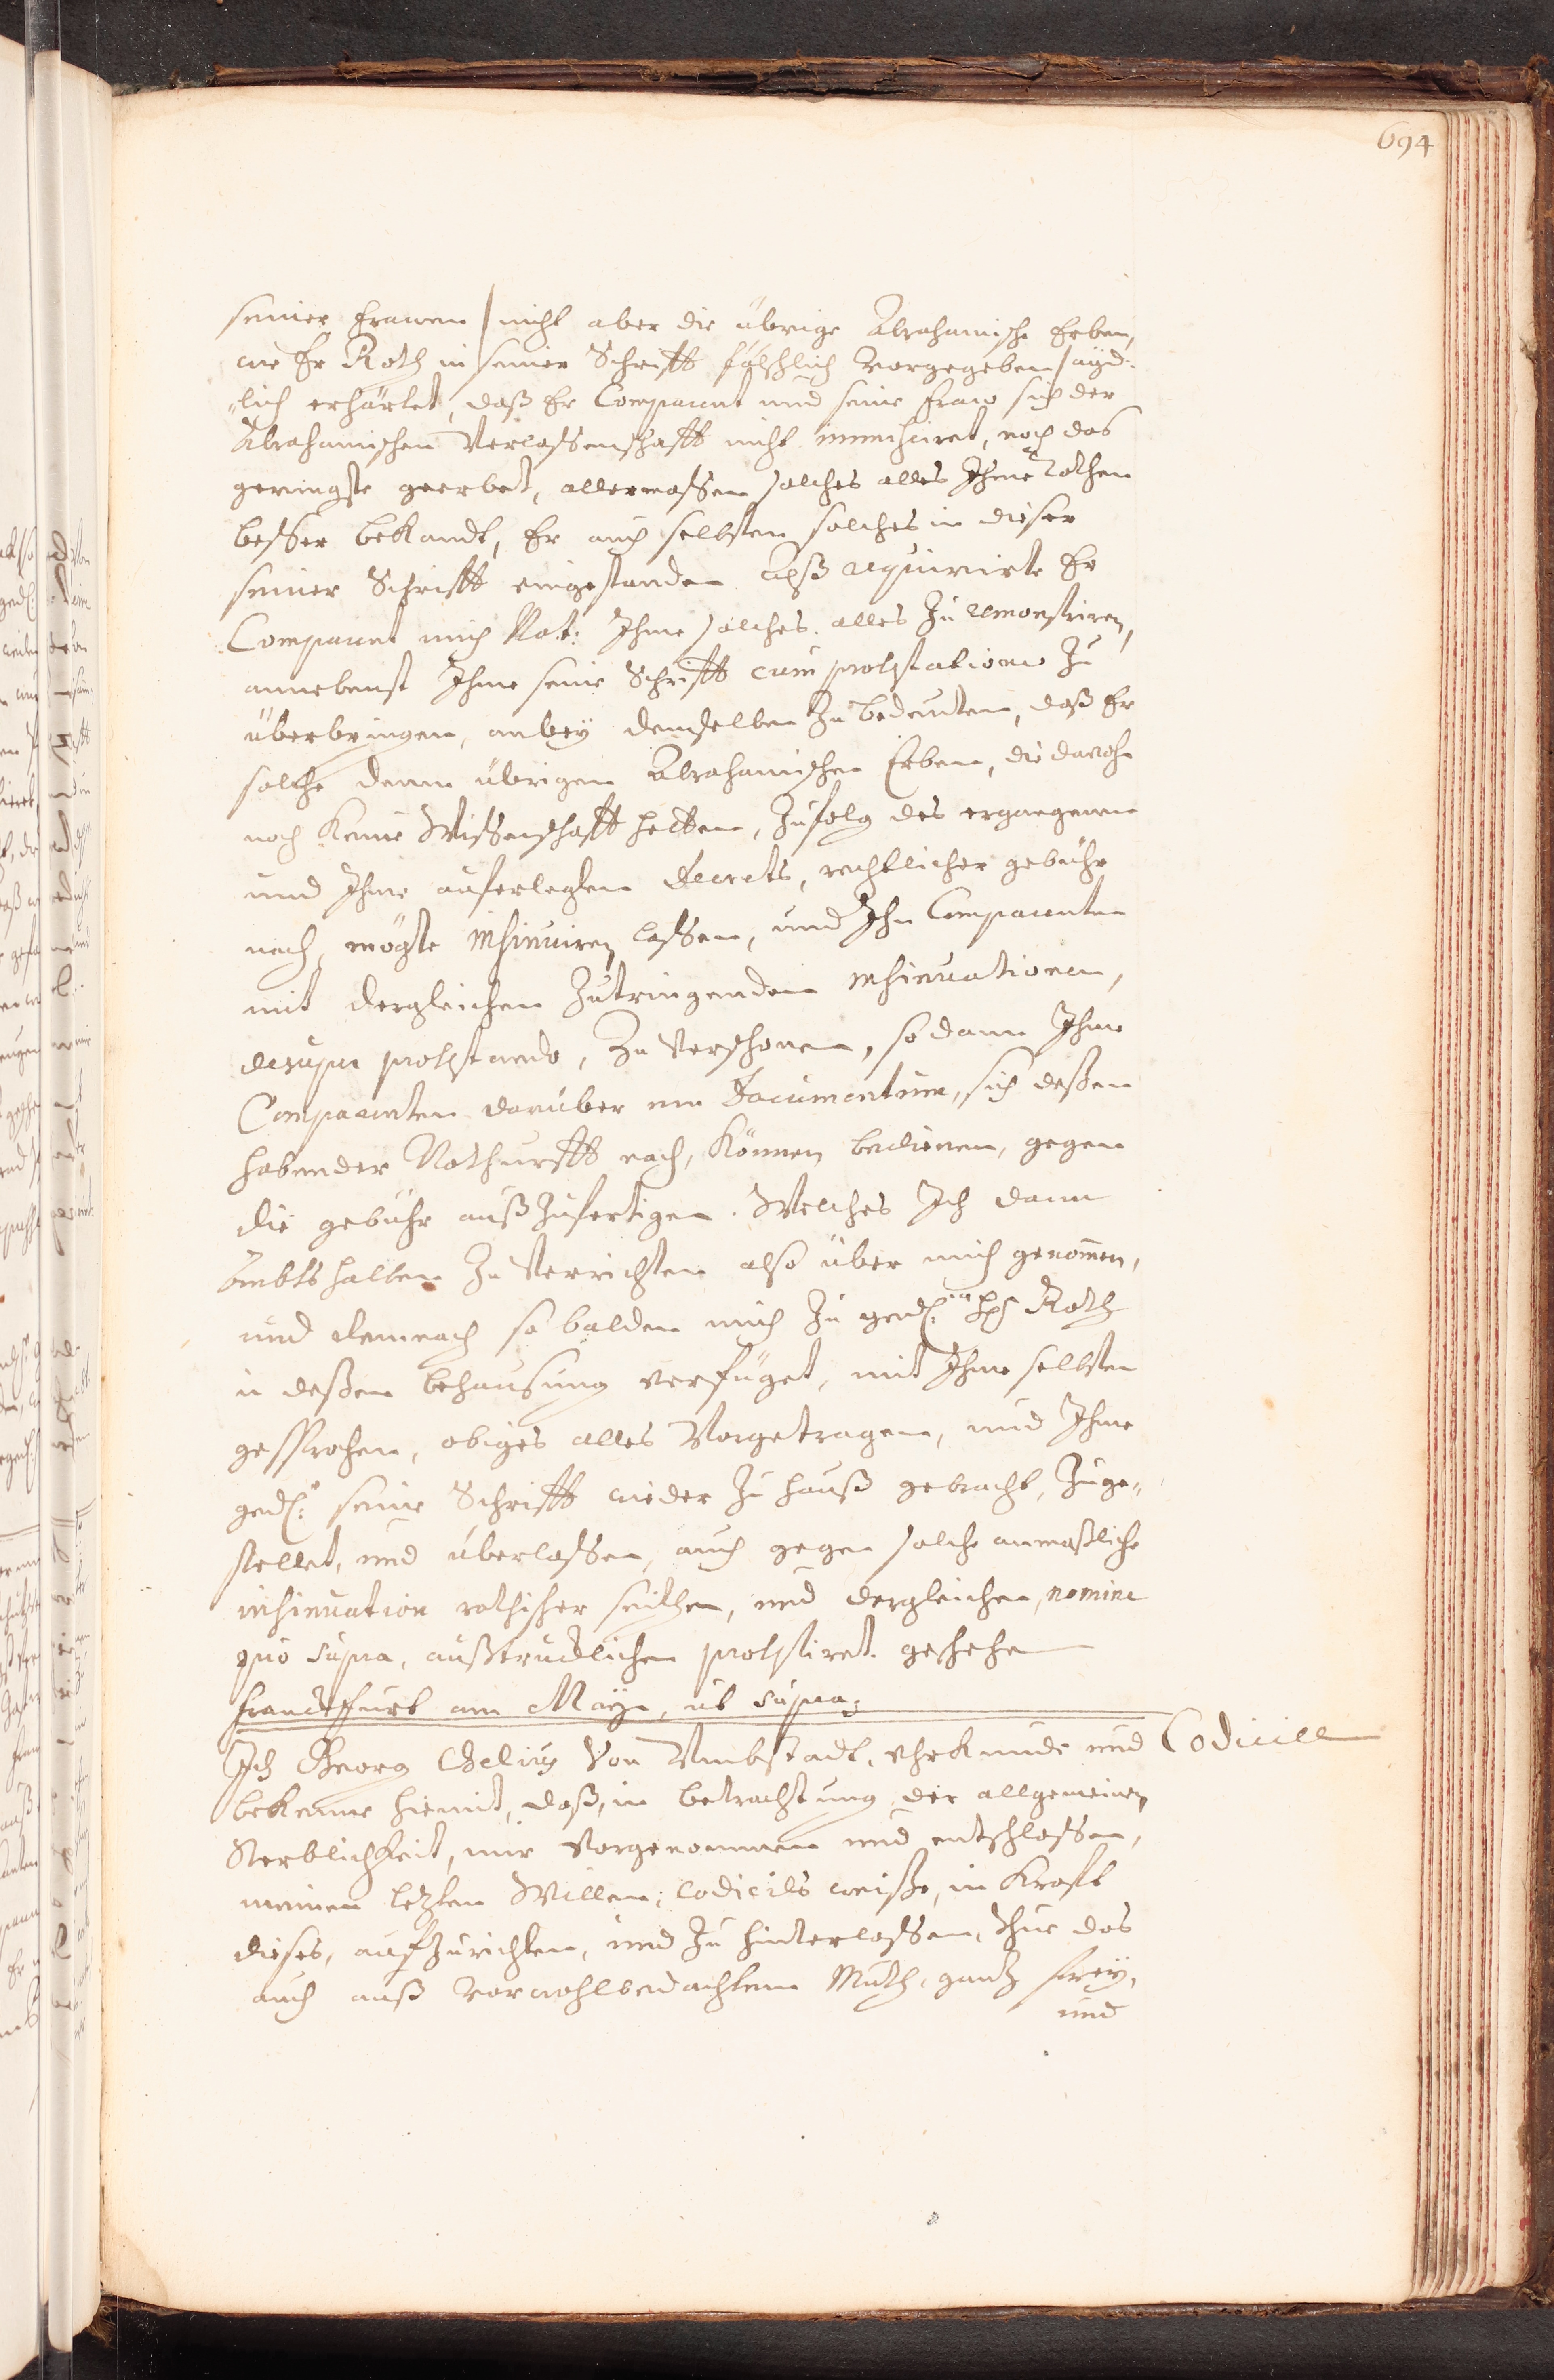 694
seiner Frawen / nicht aber die übrige Abrahamische Erben,
wie Er Roth in seiner Schrifft fälschlich vorgegeben / ayd-
lich erhärtet, daß Er Comparent und seine Fraw sich der
Abrahamischen Verlassenschafft nicht immisciret, noch das
geringste geerbet, allermassen solches alles Ihme Rothen
besser bekandt, Er auch selbsten solches in dieser
seiner Schrifft eingestanden, Alß requirirte Er
Comparent mich Not: Ihme solches alles zu remonstriren,
annebenst Ihme seine Schrifft cum protestatione zu
überbringen, anbey demselben zu bedeuten, daß Er
solche denen übrigen Abrahamischen Erben, die davohn
noch keine Wissenschafft hetten, zufolg des ergangenen
und Ihme auferlegten Decrets, rechtlicher gebühr
nach, mögte insinuiren lassen, und Ihn Comparenten
mit dergleichen zutringenden insinuationen,
desuper protestando, zu verschonen, so dann Ihme
Comparenten darüber ein Documentum, sich deßen
habender Nothurfft nach, können bedienen, gegen
die gebühr auß zufertigen. Welches Ich dann
Ambtshalben zu verrichten also über mich genommen,
und demnach so balden mich zu ged. Roth
in deßen behausung verfüget, mit Ihme selbsten
gesprochen, obiges alles vorgetragen, und Ihme
ged. seine Schrifft wieder zu hauß gebracht, zuge-
stellet, und überlassen, auch gegen solche anmaßliche
insinuation rothischer seithen, und dergleichen, nomine
quo supra, außtrucklichen protestiret. geschehen
Franckffurt am Mayn, ut supra,
Ich Georg Chelius von Umbstadt, uhrkunde und
Codicill
bekenne hiemit, daß, in betrachtung der allgemeinen
Sterblichkeit, mir vorgenommen und entschlossen,
meinen letzten Willen, Codicils weiße, in Krafft
dieses, aufzurichten, und zu hinterlassen, thue das
auch auß vorwohlbedachtem Muth, gantz frey,
und